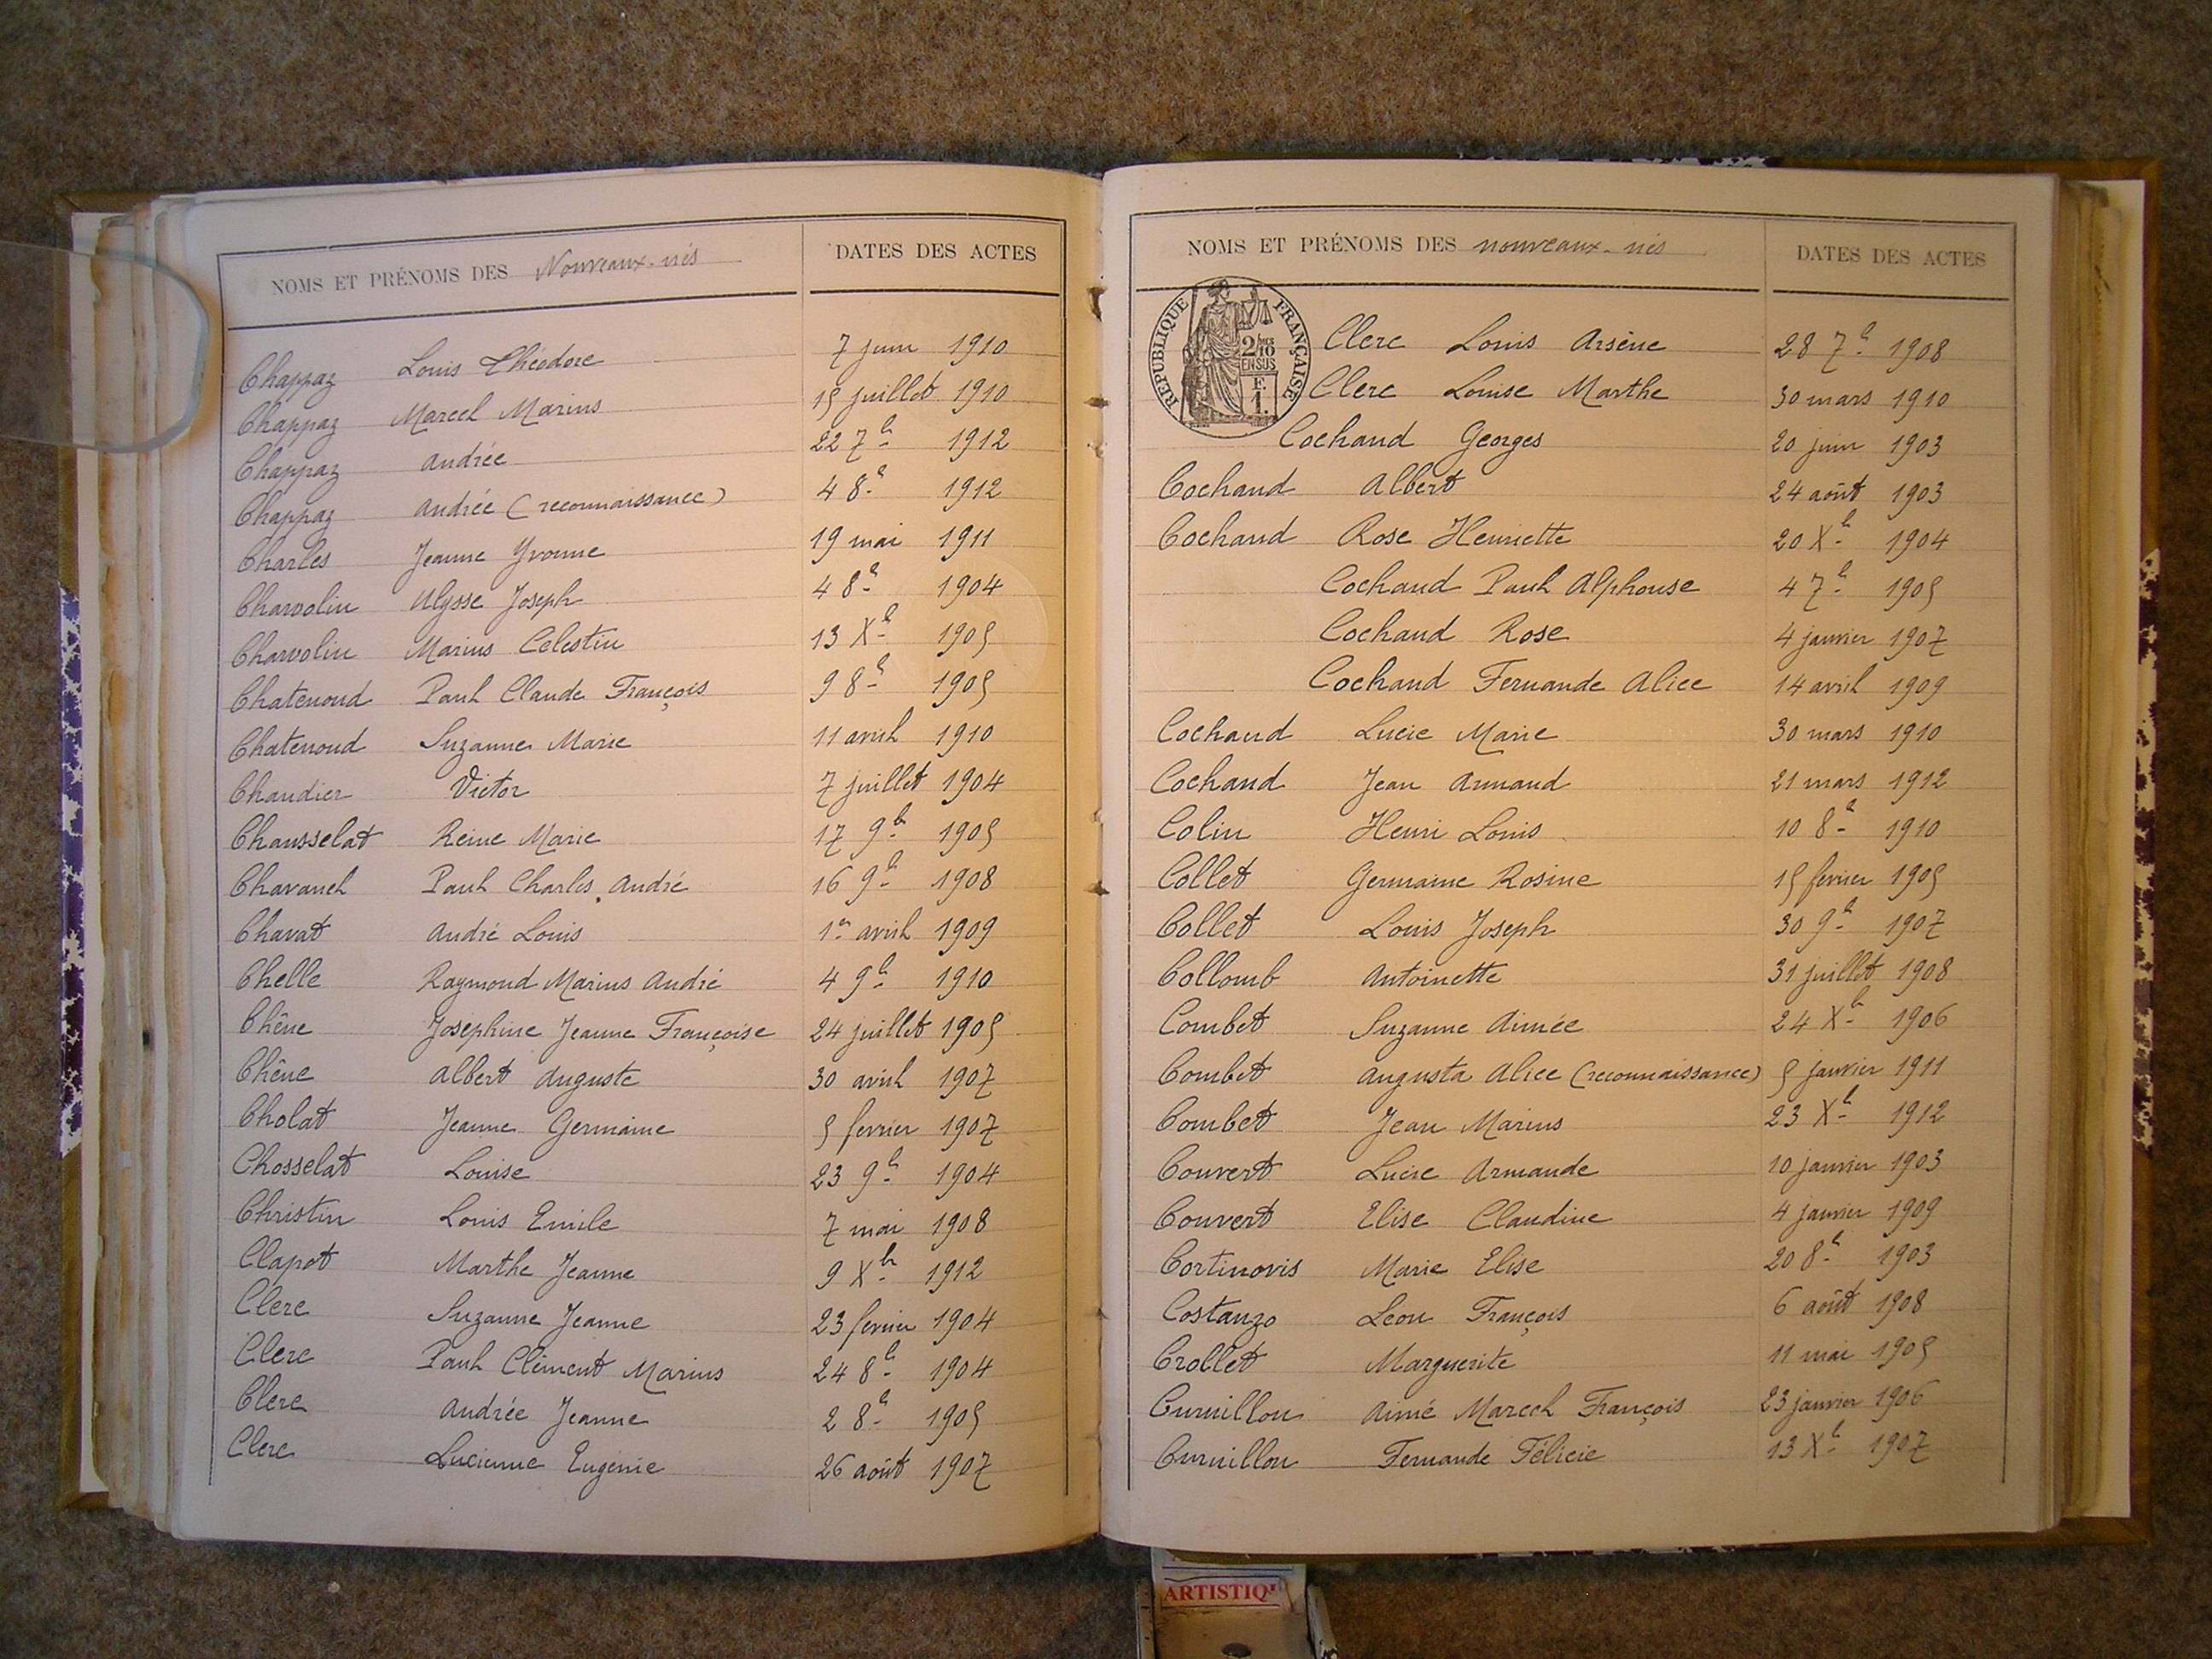 NOMS ET PRÉNOMS DES Nouveaux-nés DATES DES ACTES
Chappaz Louis Théodore 7 juin 1910
Chappaz Marcel Marius 15 juillet 1910
Chappaz Andrée 22 7b 1912
Chappaz Andrée (reconnaissance) 4 8b 1912
Charles Jeanne Yvonne 19 mai 1911
Charvolin Ulysse Joseph 4 8b 1904
Charvolin Marius Celestin 13 Xb 1905
Chatenoud Paul Claude François 9 8b 1905
Chatenoud Suzanne Marie 11 avril 1910
Chaudier Victor 7 juillet 1904
Chausselat Reine Marie 17 9b 1905
Chavanel Paul Charles André 16 9b 1908
Chavat André Louis 1er avril 1909
Chelle Raymond Marius André 4 9b 1910
Chêne Joséphine Jeanne Françoise 24 juillet 1905
Chêne Albert Auguste 30 avril 1907
Cholat Jeanne Germaine 5 février 1907
Chosselat Louise 23 9b 1904
Christin Louis Emile 7 mai 1908
Clapot Marthe Jeanne 9 Xb 1912
Clerc Suzanne Jeanne 23 février 1904
Clerc Paul Clément Marius 24 8b 1904
Clerc Andrée Jeanne 2 8b 1905
Clerc Lucienne Eugénie 26 août 1907
NOMS ET PRÉNOMS DES nouveaux-nés DATES DES ACTES
RÉPUBLIQUE FRANÇAISE
2/10 EN SUS
F.
1.
Clerc Louis Arsène 28 7b 1908
Clerc Louise Marthe 30 mars 1910
Cochand Georges 20 juin 1903
Cochand Albert 24 août 1903
Cochand Rose Henriette 20 Xb 1904
Cochand Paul Alphonse 4 7b 1905
Cochand Rose 4 janvier 1907
Cochand Fernande Alice 14 avril 1909
Cochand Lucie Marie 30 mars 1910
Cochand Jean Armand 21 mars 1912
Colin Henri Louis 10 8b 1910
Collet Germaine Rosine 15 février 1905
Collet Louis Joseph 30 9b 1907
Collomb Antoinette 31 juillet 1908
Combet Suzanne Aimée 24 Xb 1906
Combet Augusta Alice (reconnaissance) 5 janvier 1911
Combet Jean Marius 23 Xb 1912
Convert Lucie Armande 10 janvier 1903
Convert Elise Claudine 4 janvier 1909
Cortinovis Marie Elise 20 8b 1903
Costanzo Léon François 6 août 1908
Crollet Marguerite 11 mai 1905
Curuillon Aimé Marcel François 23 janvier 1906
Curuillon Fernande Félicie 13 Xb 1907
ARTISTIQ